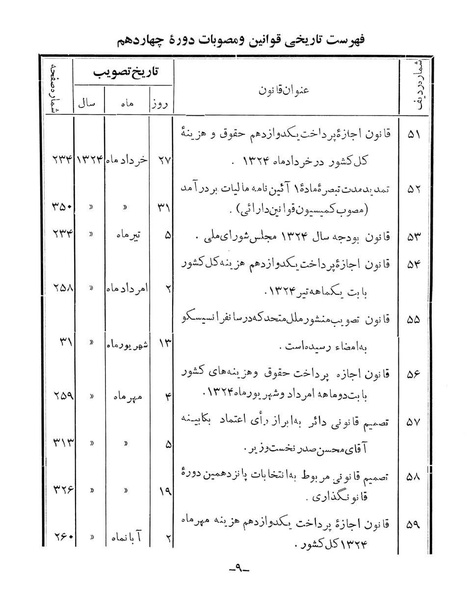 فهرست تاریخی قوانین ومصوبات دورهٔ چهاردهم
شماره‌ردیف عنوان‌قانون تاریخ‌تصویب شماره‌صفحه
روز ماه سال
۵۱ قانون اجازهٔ پرداخت یکدوازدهم حقوق و هزینهٔ
کل کشور در خردادماه ۱۳۲۴ . ۲۷ خردادماه ۱۳۲۴ ۲۳۴
۵۲ تمدیدمدت تبصرهٔ مادهٔ ۱ آئین‌نامه مالیات بردرآمد
(مصوب کمیسیون قوانین‌دارائی) . ۳۱ » » ۳۵۰
۵۳ قانون بودجه سال ۱۳۲۴ مجلس‌شورای‌ملی . ۵ تیرماه » ۲۳۴
۵۴ قانون اجازهٔ پرداخت یکدوازدهم هزینه کل کشور
بابت یکماهه تیر ۱۳۲۴. ۲ امردادماه » ۲۵۸
۵۵ قانون تصویب منشور ملل متحدکه درسانفرانسیسکو
به‌امضاء رسیده‌است . ۱۳ شهریورماه » ۳۱
۵۶ قانون اجازه پرداخت حقوق وهزینه‌های کشور
بابت‌دوماهه امرداد وشهریورماه۱۳۲۴. ۴ مهرماه » ۲۵۹
۵۷ تصمیم قانونی دائر به‌ابراز رأی اعتماد بکابینه
آقای‌محسن‌صدر نخست‌وزیر. ۵ » » ۳۱۳
۵۸ تصمیم قانونی مربوط به‌انتخابات پانزدهمین دورهٔ
قانونگذاری . ۱۹ » » ۳۲۶
۵۹ قانون اجازهٔ پرداخت یکدوازدهم هزینه مهرماه
۱۳۲۴ کل‌کشور . ۲ آبانماه » ۲۶۰
-۹-